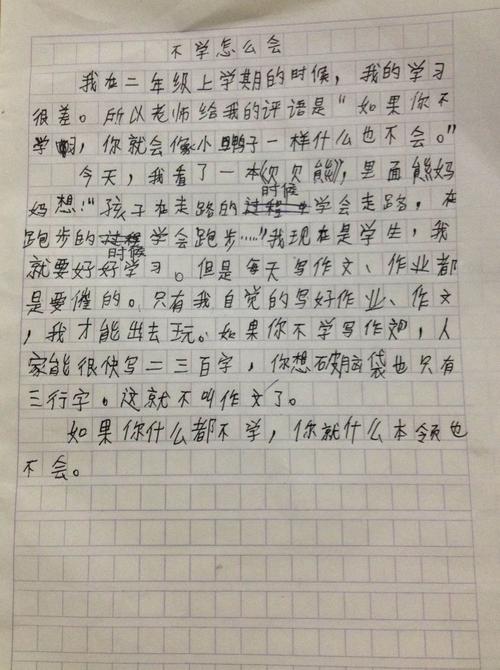 不学怎么会
我在二年级上学期的时候，我的学习
很差。所以老师给我的评语是“如果你不
学，你就会像小鸭子一样什么也不会。”
今天，我看了一本《贝贝熊》，里面熊妈
时候
妈想：“孩子在走路的过程中学会走路，在
跑步的过程学会跑步……”我现在是学生，我
时候
就要好好学习。但是每天写作文、作业都
是要催的。只有我自觉的写好作业、作文
，我才能出去玩。如果你不学写作文，人
家能很快写二三百字，你想破脑袋也只有
三行字。这就不叫作文了。
如果你什么都不学，你就什么本领也
不会。